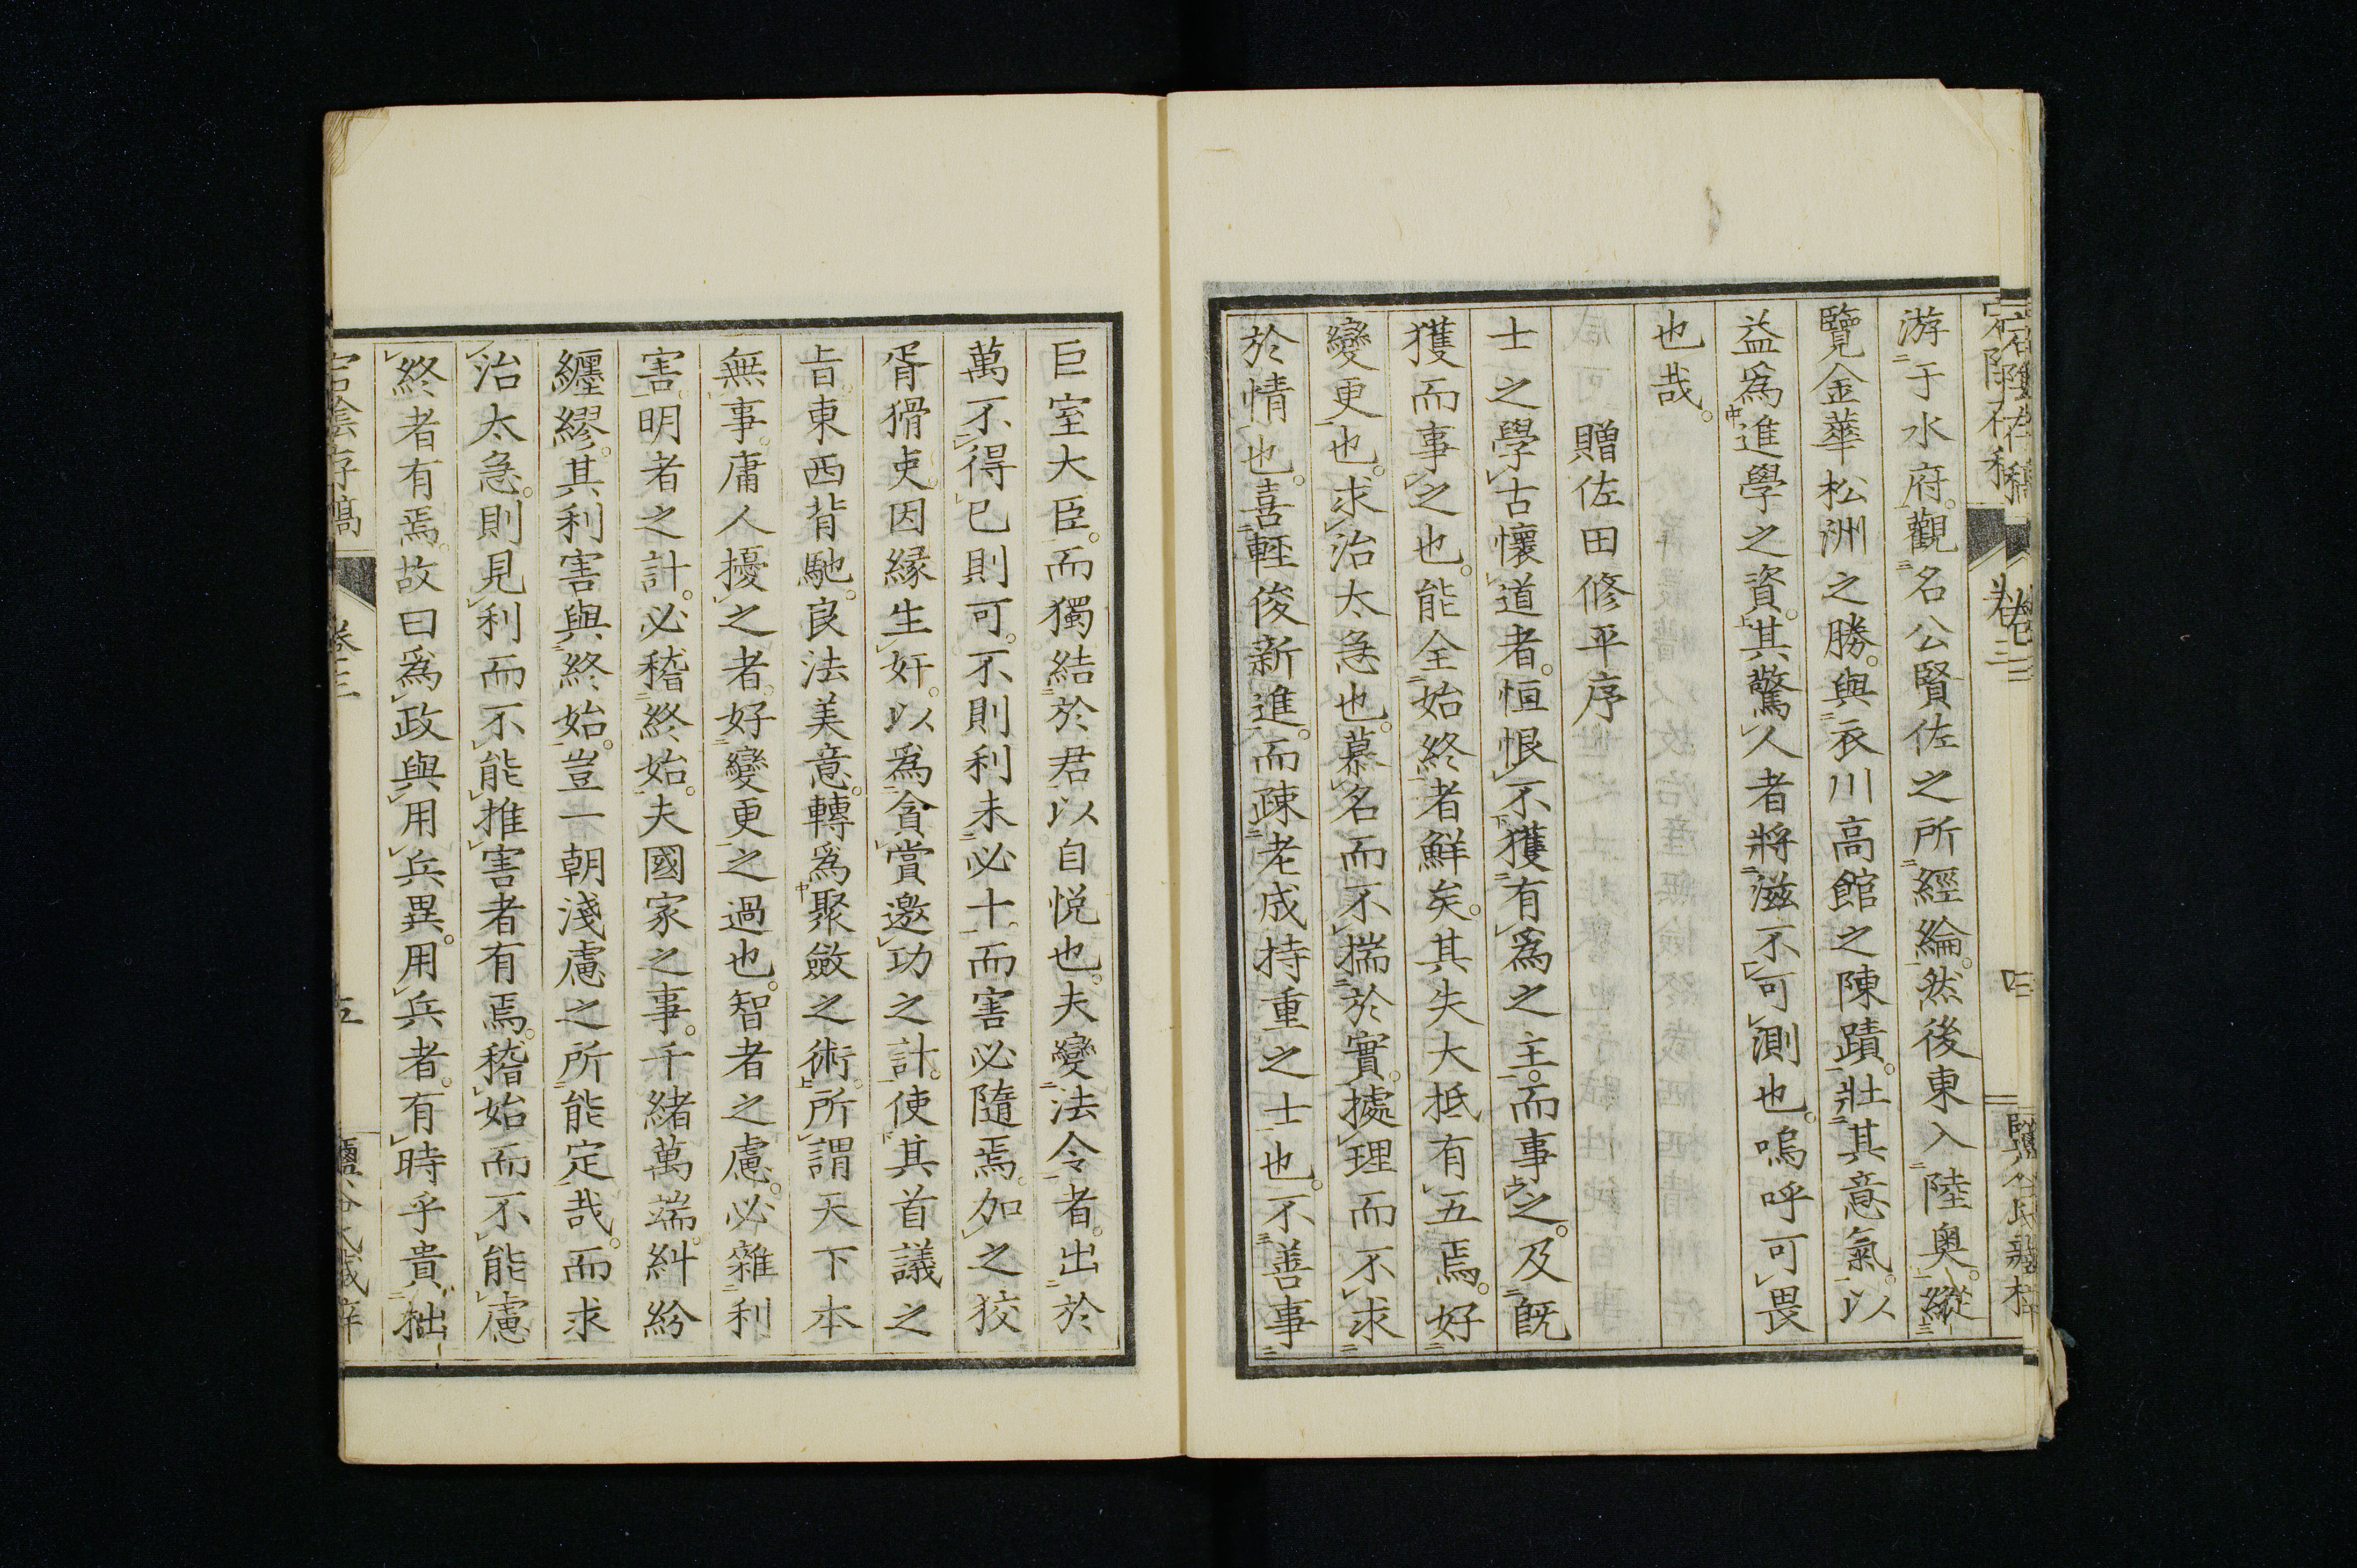 游于水府。觀名公賢佐之所經綸。然後東入陸奧。縱
覽金華松洲之勝。與衣川高館之陳蹟。壯其意氣。以
益爲進學之資。其驚人者將滋不可測也。嗚呼可畏
也哉。
贈佐田修平序
士之學古懷道者。恒恨不獲有爲之主。而事之。及既
獲而事之也。能全始終者鮮矣。其失大抵有五焉。好
變更也。求治太急也。慕名而不揣於實。據理而不求
於情也。喜輕俊新進。而疎老成持重之士也。不善事
巨室大臣。而獨結於君以自悦也。夫變法令者。出於
萬不得已則可。不則利未必十。而害必隨焉。加之狡
胥猾吏。因緣生奸。以爲貪賞邀功之計。使其首議之
旨。東西背馳。良法美意。轉爲聚斂之術。所謂天下本
無事。庸人擾之者。好變更之過也。智者之慮。必雜利
害。明者之計。必稽終始。夫國家之事。千緒萬端。糾紛
纏繆。其利害與終始。豈一朝淺慮之所能定哉。而求
治太急。則見利而不能推害者有焉。稽始而不能慮
終者有焉。故曰爲政與用兵異。用兵者。有時乎貴拙
宕陰存稿
卷三
五